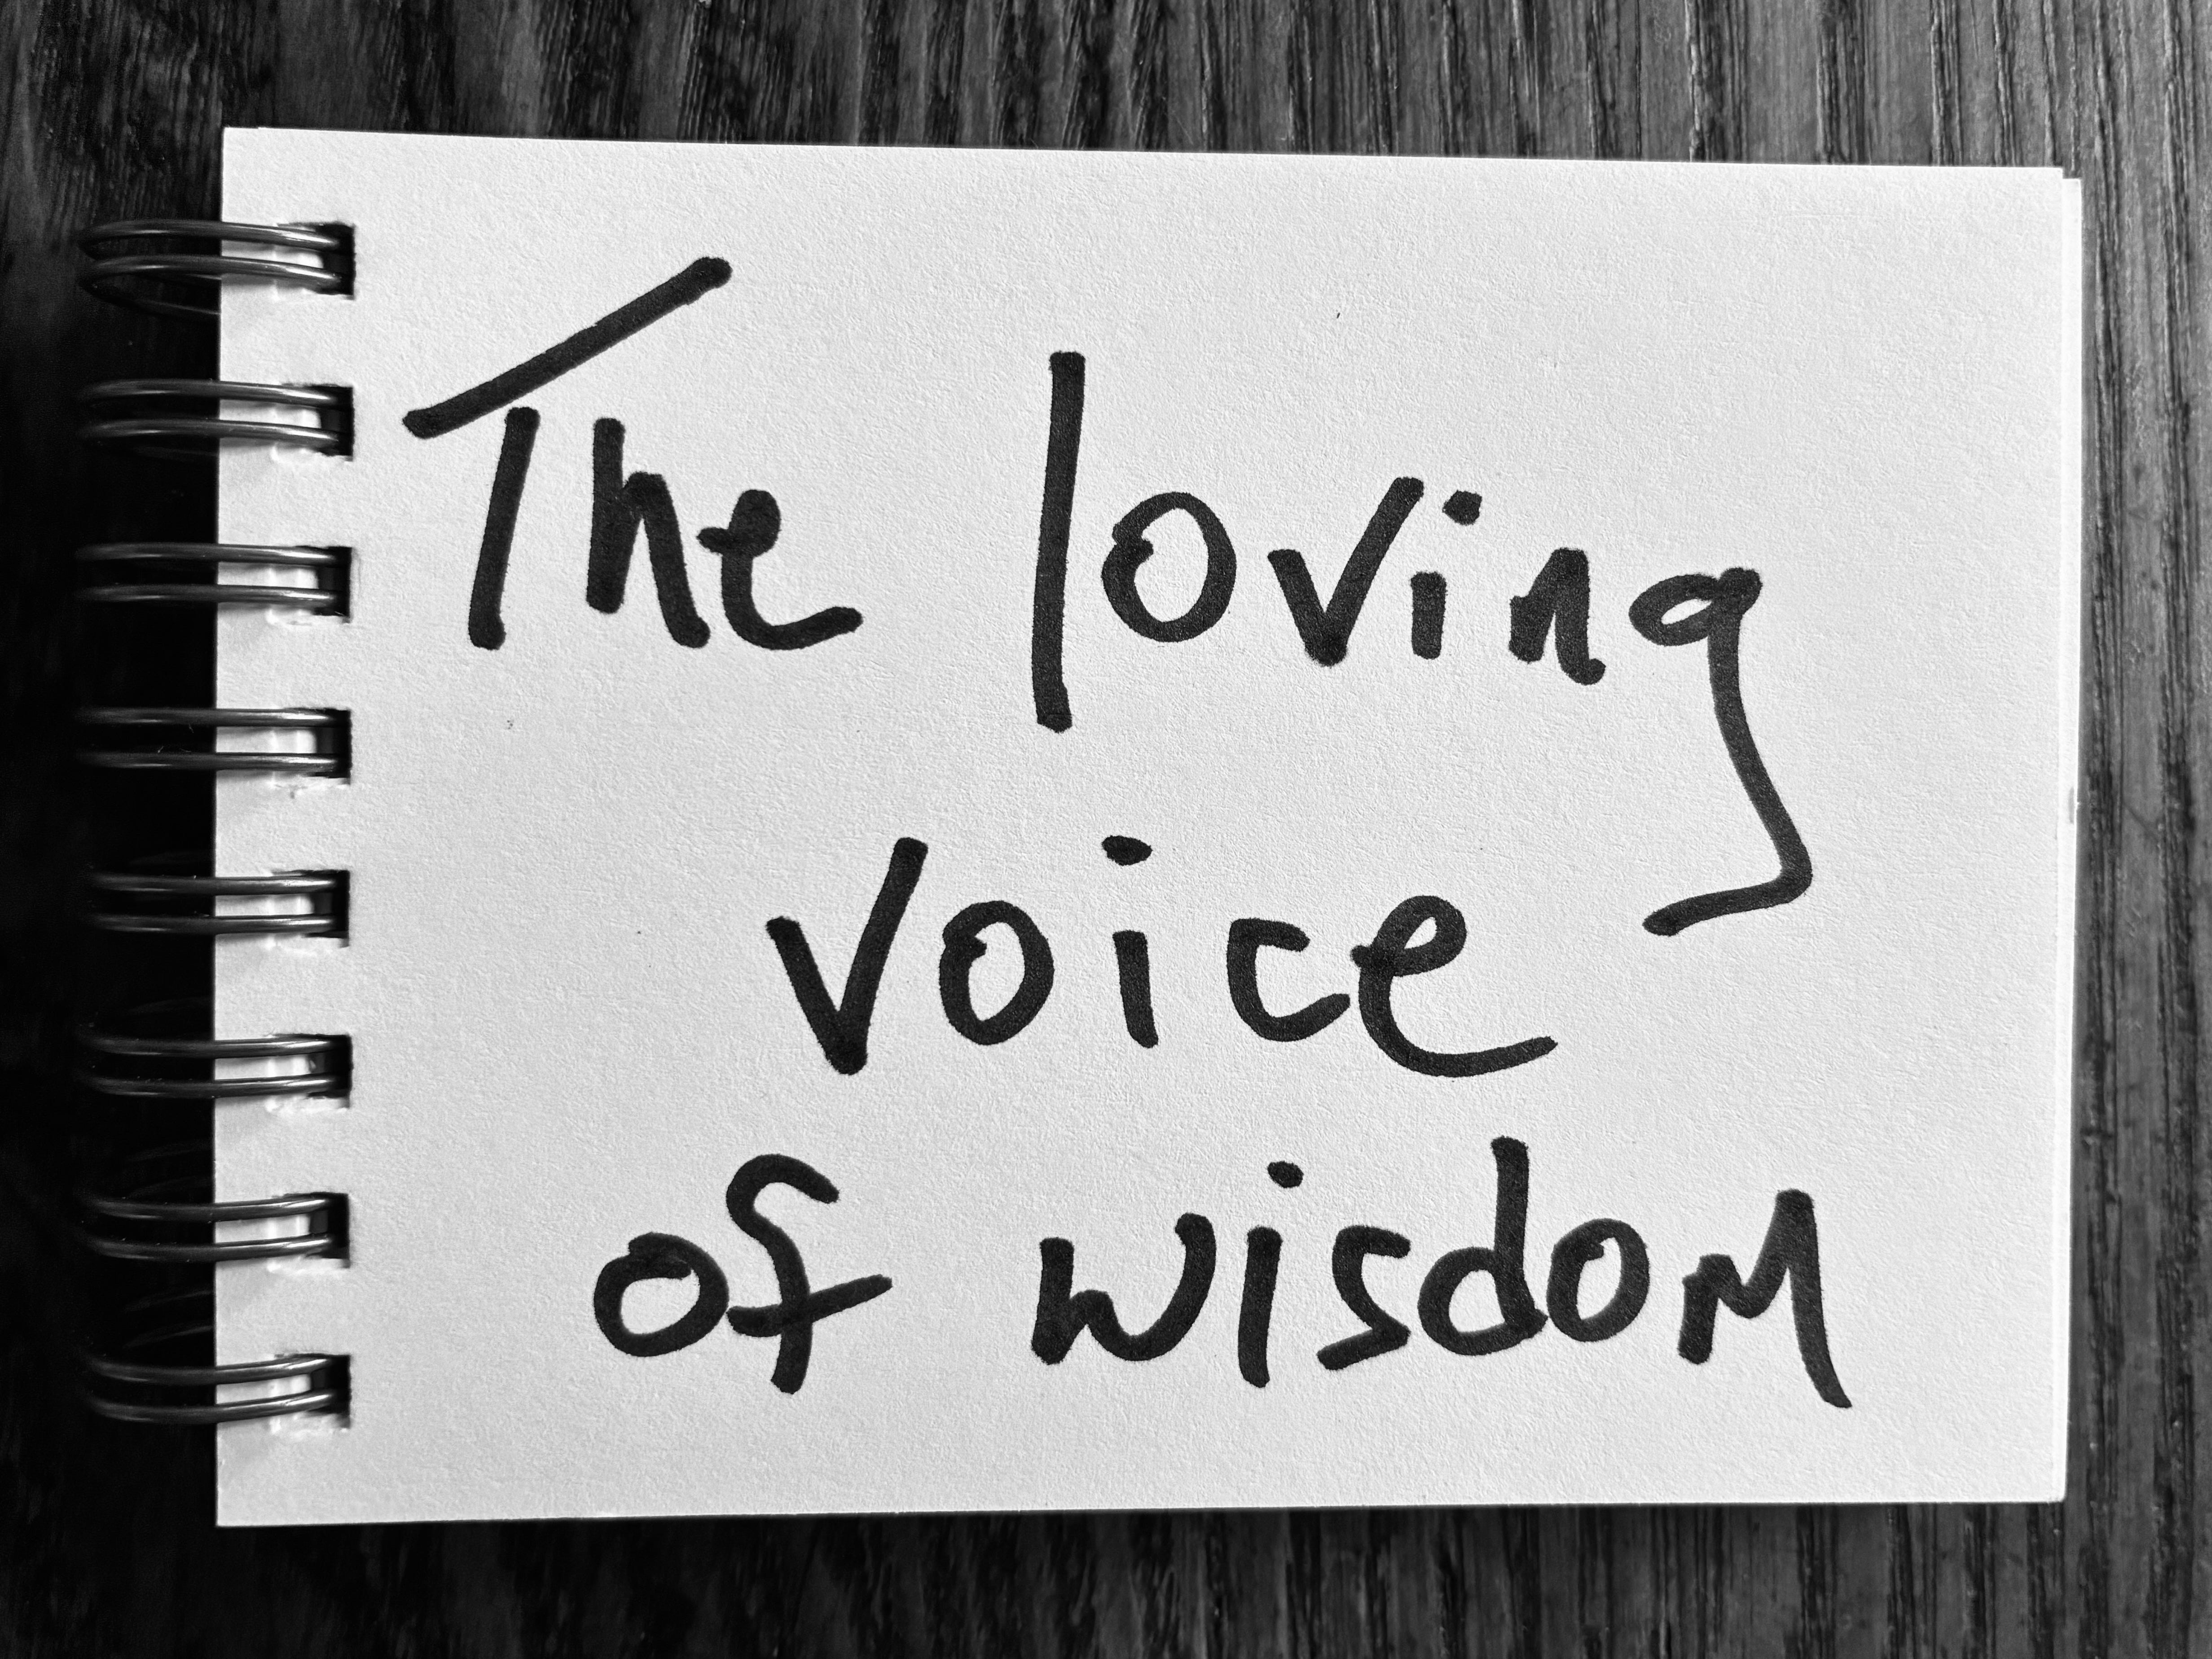 The loving
voice
of wisdom